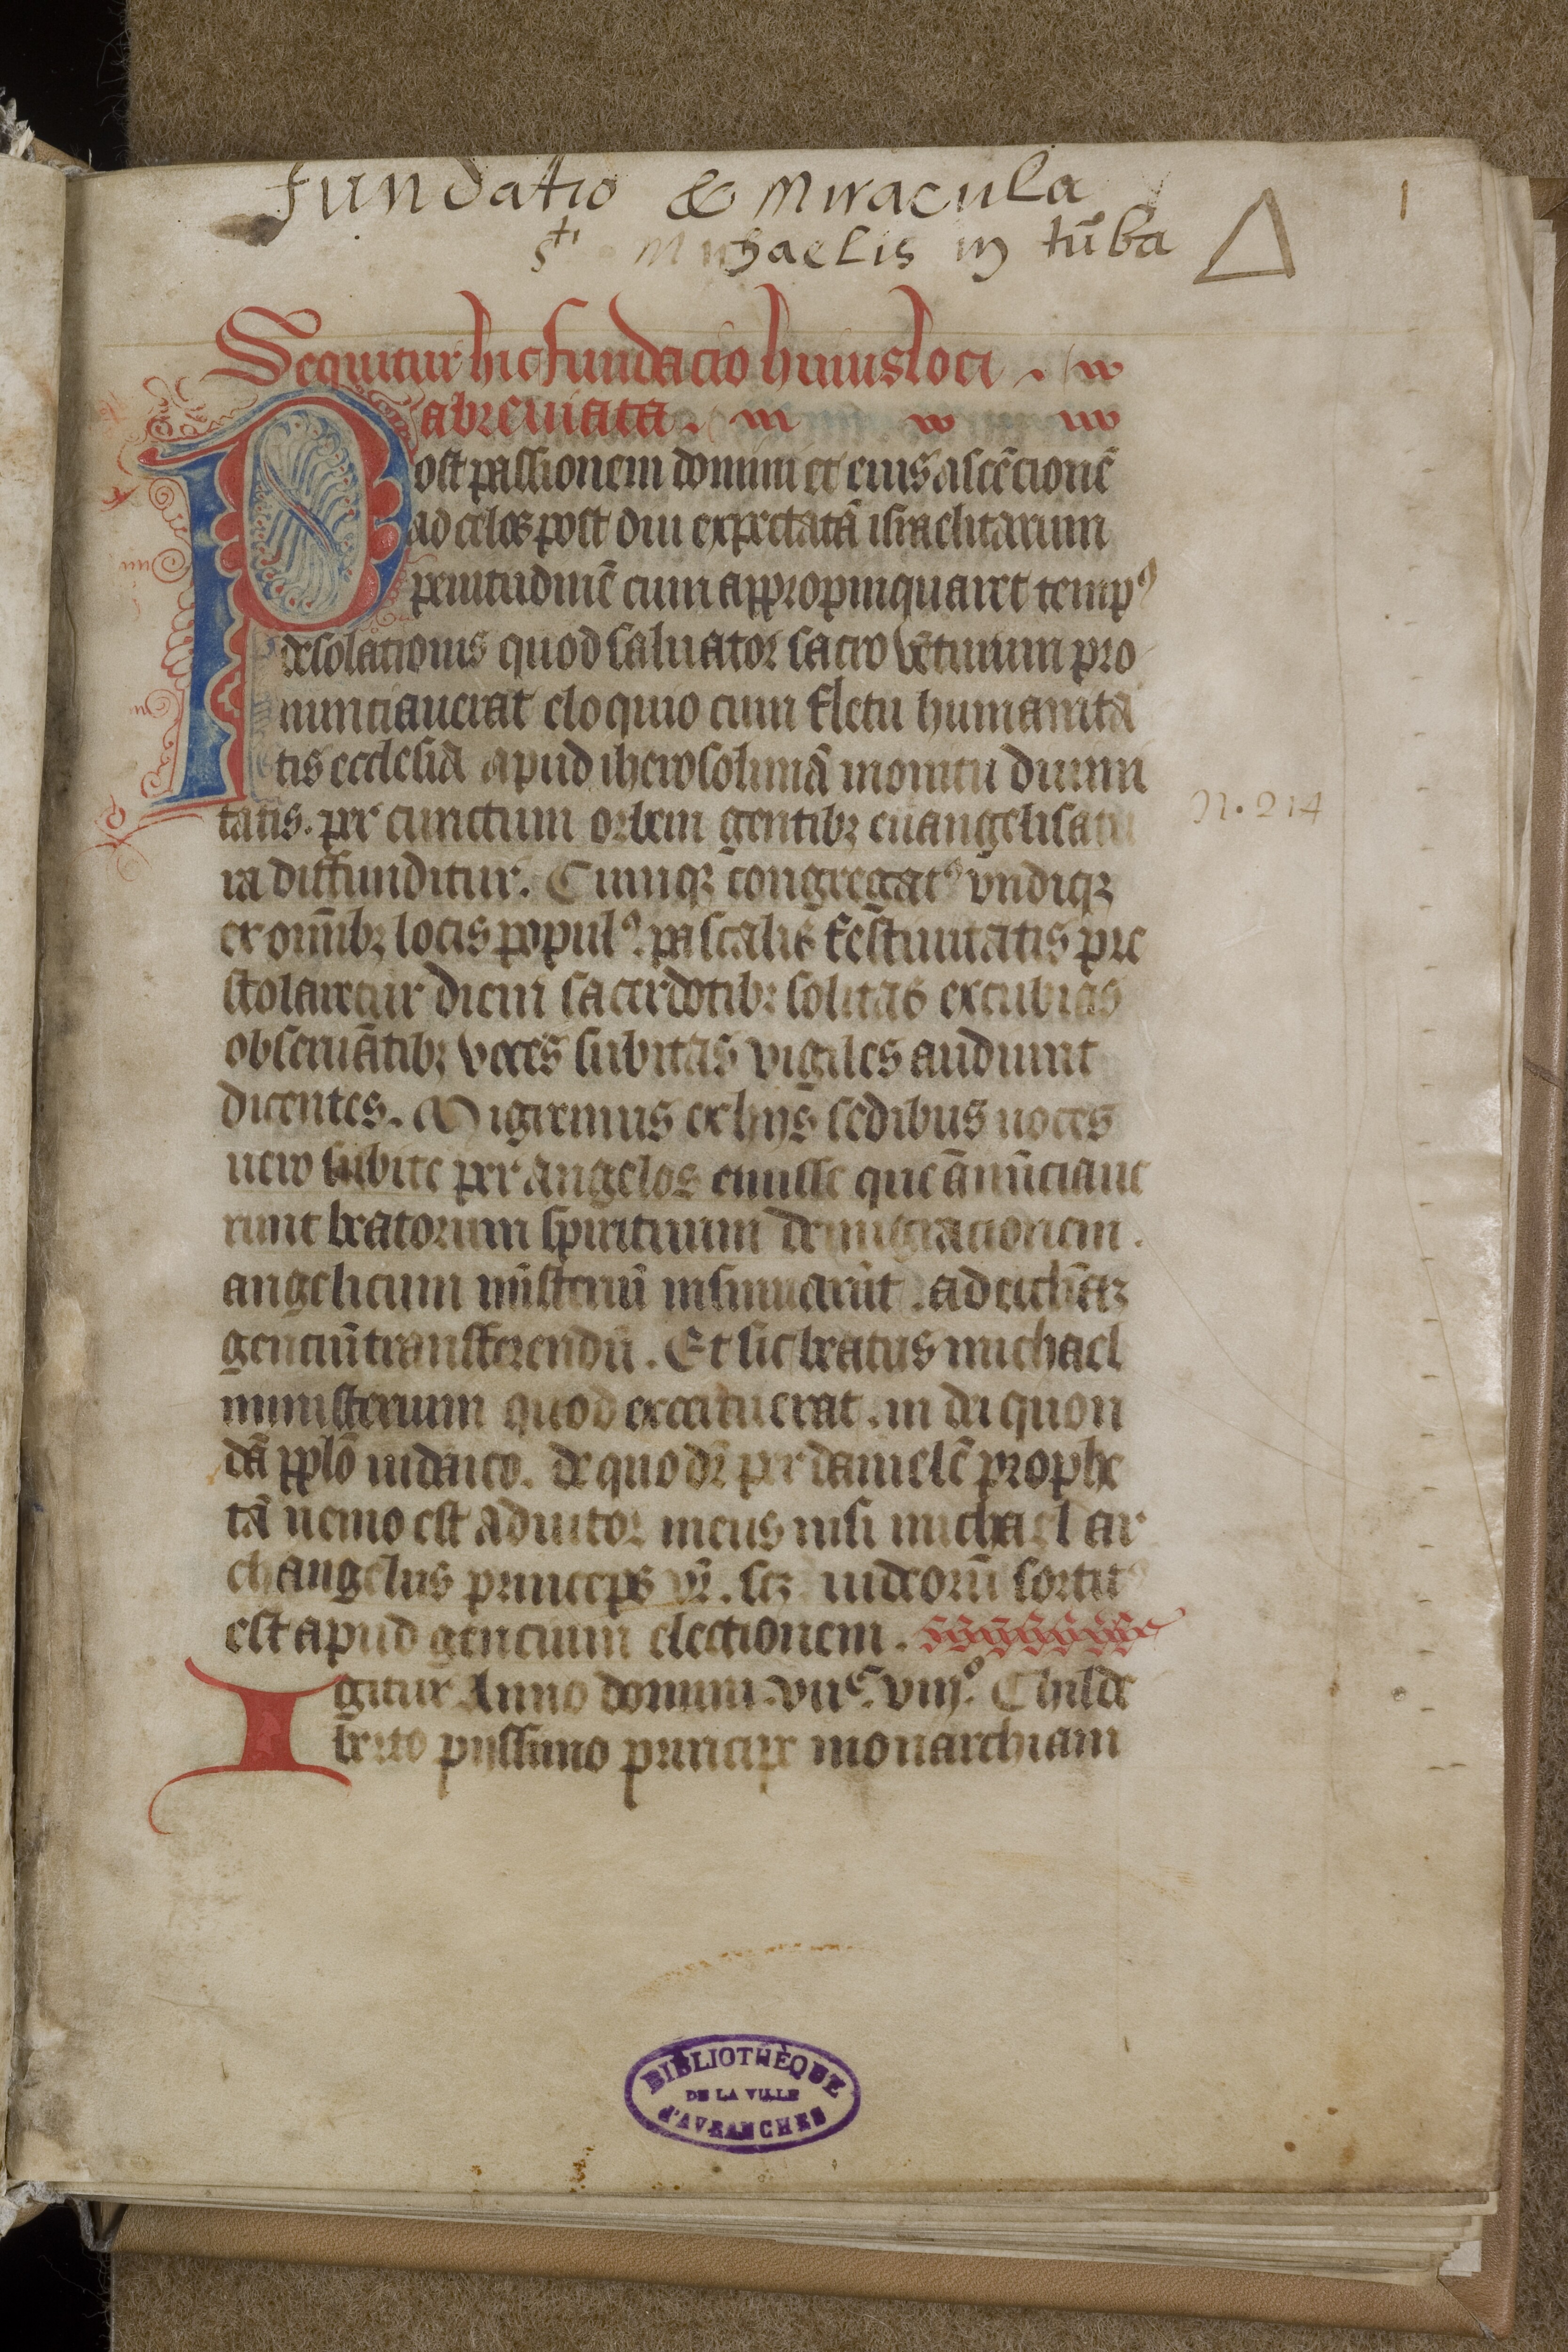 fundatio & Miracula
sti Michaelis in tūba
1
Sequitur hic fundacio huius loci .
abreuiata .
Post passionem domini et eius ascēcionē
ad celos post diu expectatā israelitarum
penitudinē cum appropinquaret temp⁹
desolationis quod saluator sacro vēturum pro
nunciauerat eloquio cum fletu humanita
tis ecclesia apud iherosolimā monitu diuini
tatis. per cunctum orbem gentibꝫ euangelisatu
ra diffunditur. Cumqꝫ congregat⁹ vndiqꝫ
ex omībꝫ locis popul⁹. pascalis festiuitatis pre
stolaretur diem sacerdotibꝫ solitas excubias
obseruātibꝫ voces subitas vigiles audiunt
dicentes. Migremus ex hijs sedibus uoces
uero subite per angelos emisse que ānūciaue
runt beatorum spirituum demigracionem.
angelicum mīsteriū insinuarūt . ad
genciū transferendū. Et sic beatus michael
ministerium quod exercuerat. in dei quon
dā pplō iudaico. de quo dr̄ per danielē prophe
tā nemo est adiutor meus nisi michael ar
changelus princeps vr̄. scꝫ iudeorū sortit⁹
est apud gencium electionem.
Igitur Anno domini .viiᶜ. viijᵒ. Childe
berto pijssimo principe monarchiam
N. 214
BIBLIOTHÈQUE
DE LA VILLE
D'AVRANCHES